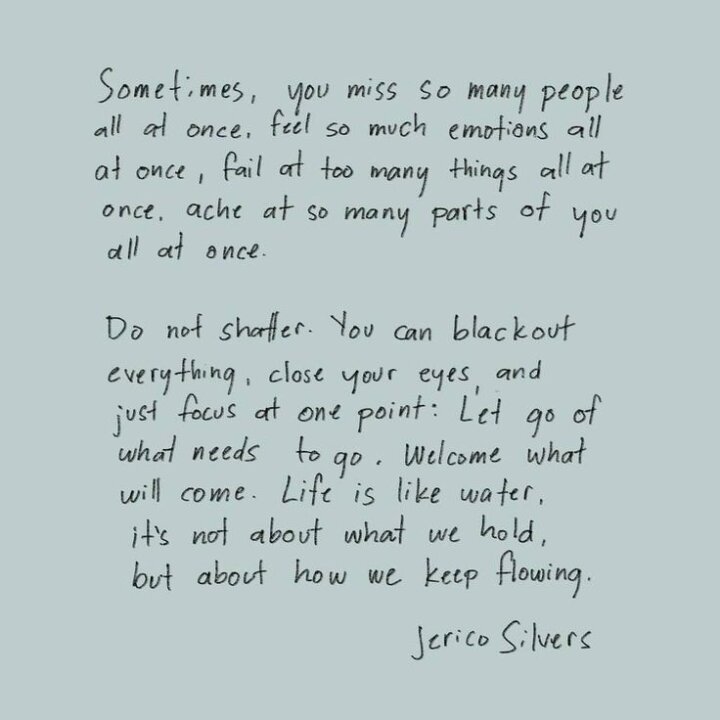 Sometimes, you miss so many people
all at once, feel so much emotions all
at once, fail at too many things all at
once, ache at so many parts of you
all at once.
Do not shatter. You can blackout
everything, close your eyes, and
just focus at one point: Let go of
what needs to go. Welcome what
will come. Life is like water,
it's not about what we hold,
but about how we keep flowing.
Jerico Silvers